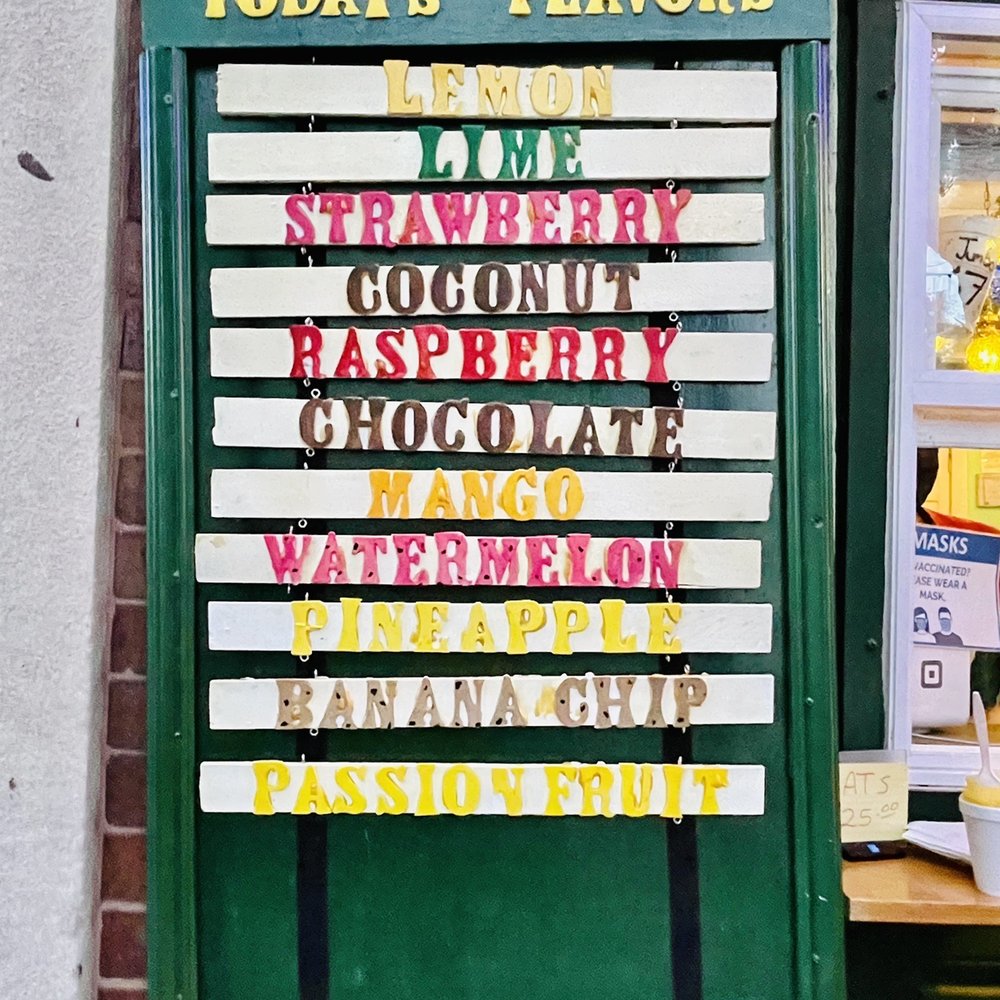 TODAY'S FLAVORS
LEMON
LIME
STRAWBERRY
COCONUT
RASPBERRY
CHOCOLATE
MANGO
WATERMELON
PINEAPPLE
BANANA CHIP
PASSION FRUIT
MASKS
VACCINATED?
WEAR A
MASK.
ATS
25.00